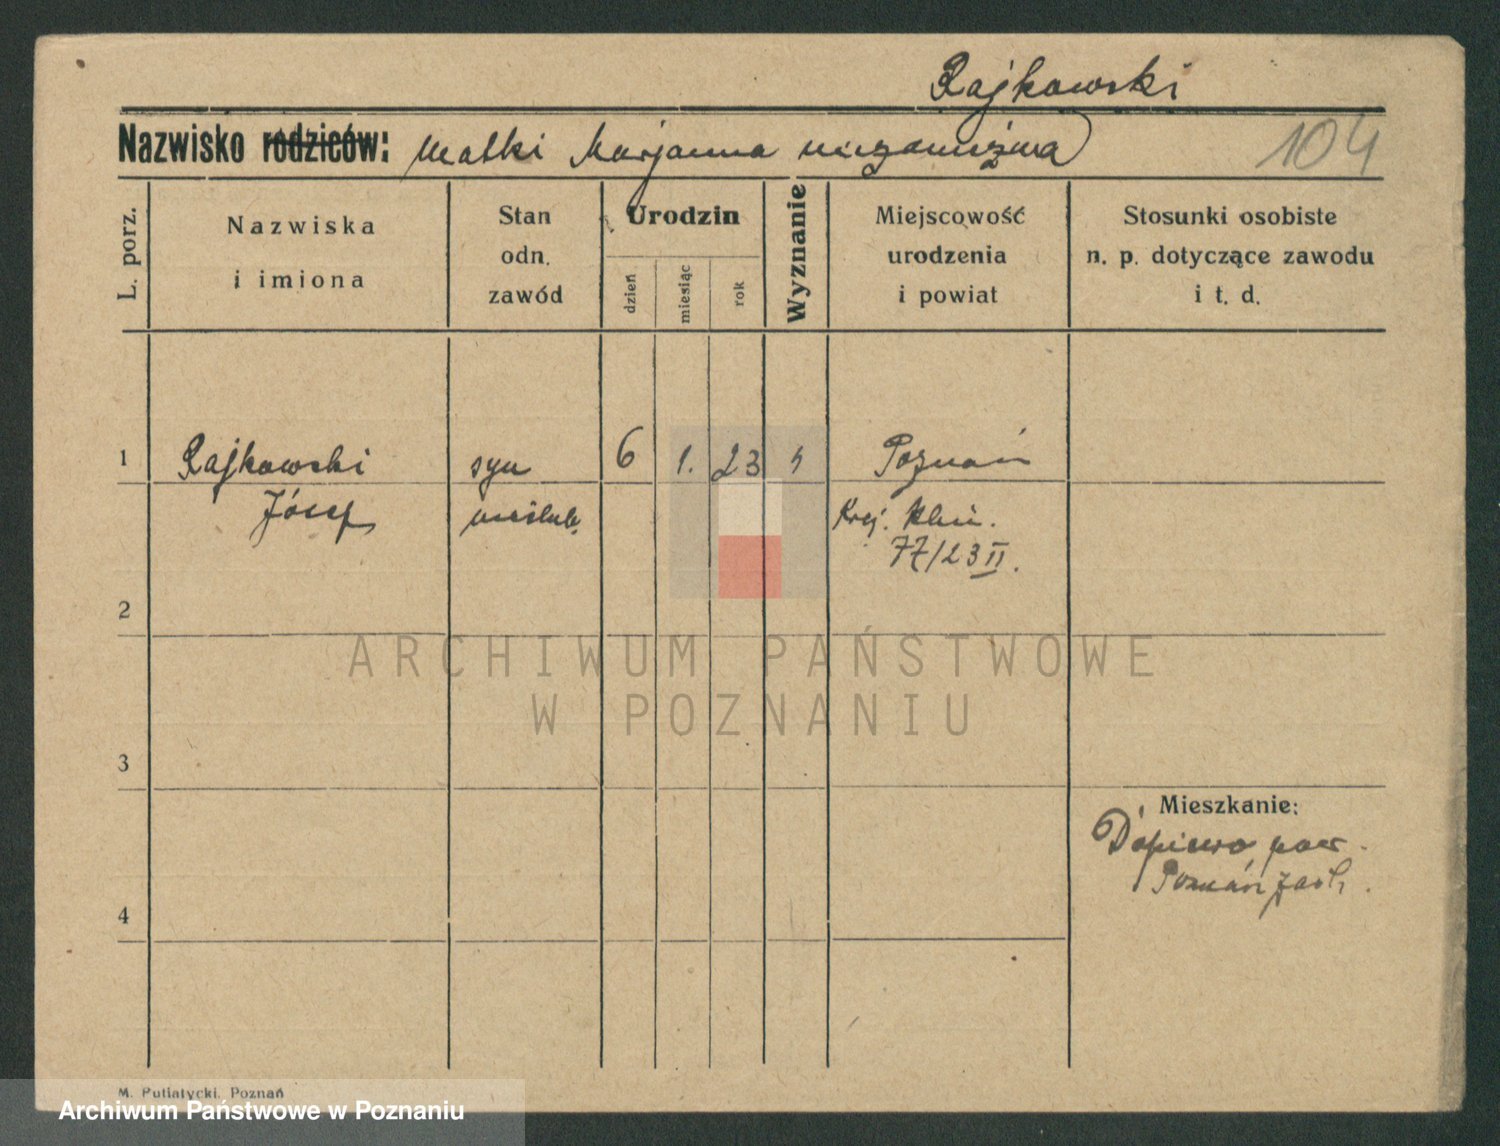 Rajkowski
Nazwisko rodziców: Matki Marjanna niezamężna
104
L. porz.
Nazwiska
i imiona
Stan
odn.
zawód
Urodzin
dzień
miesiąc
rok
Wyznanie
Miejscowość
urodzenia
i powiat
Stosunki osobiste
n. p. dotyczące zawodu
i t. d.
1 Rajkowski syn 6 1. 23 Poznań
Józef nieślub. Kraj. Klin.
77/23 II.
2
ARCHIWUM PAŃSTWOWE
W POZNANIU
3
Mieszkanie:
Dopiewo pow.
Poznań zach.
4
M. Putiatycki, Poznań
Archiwum Państwowe w Poznaniu